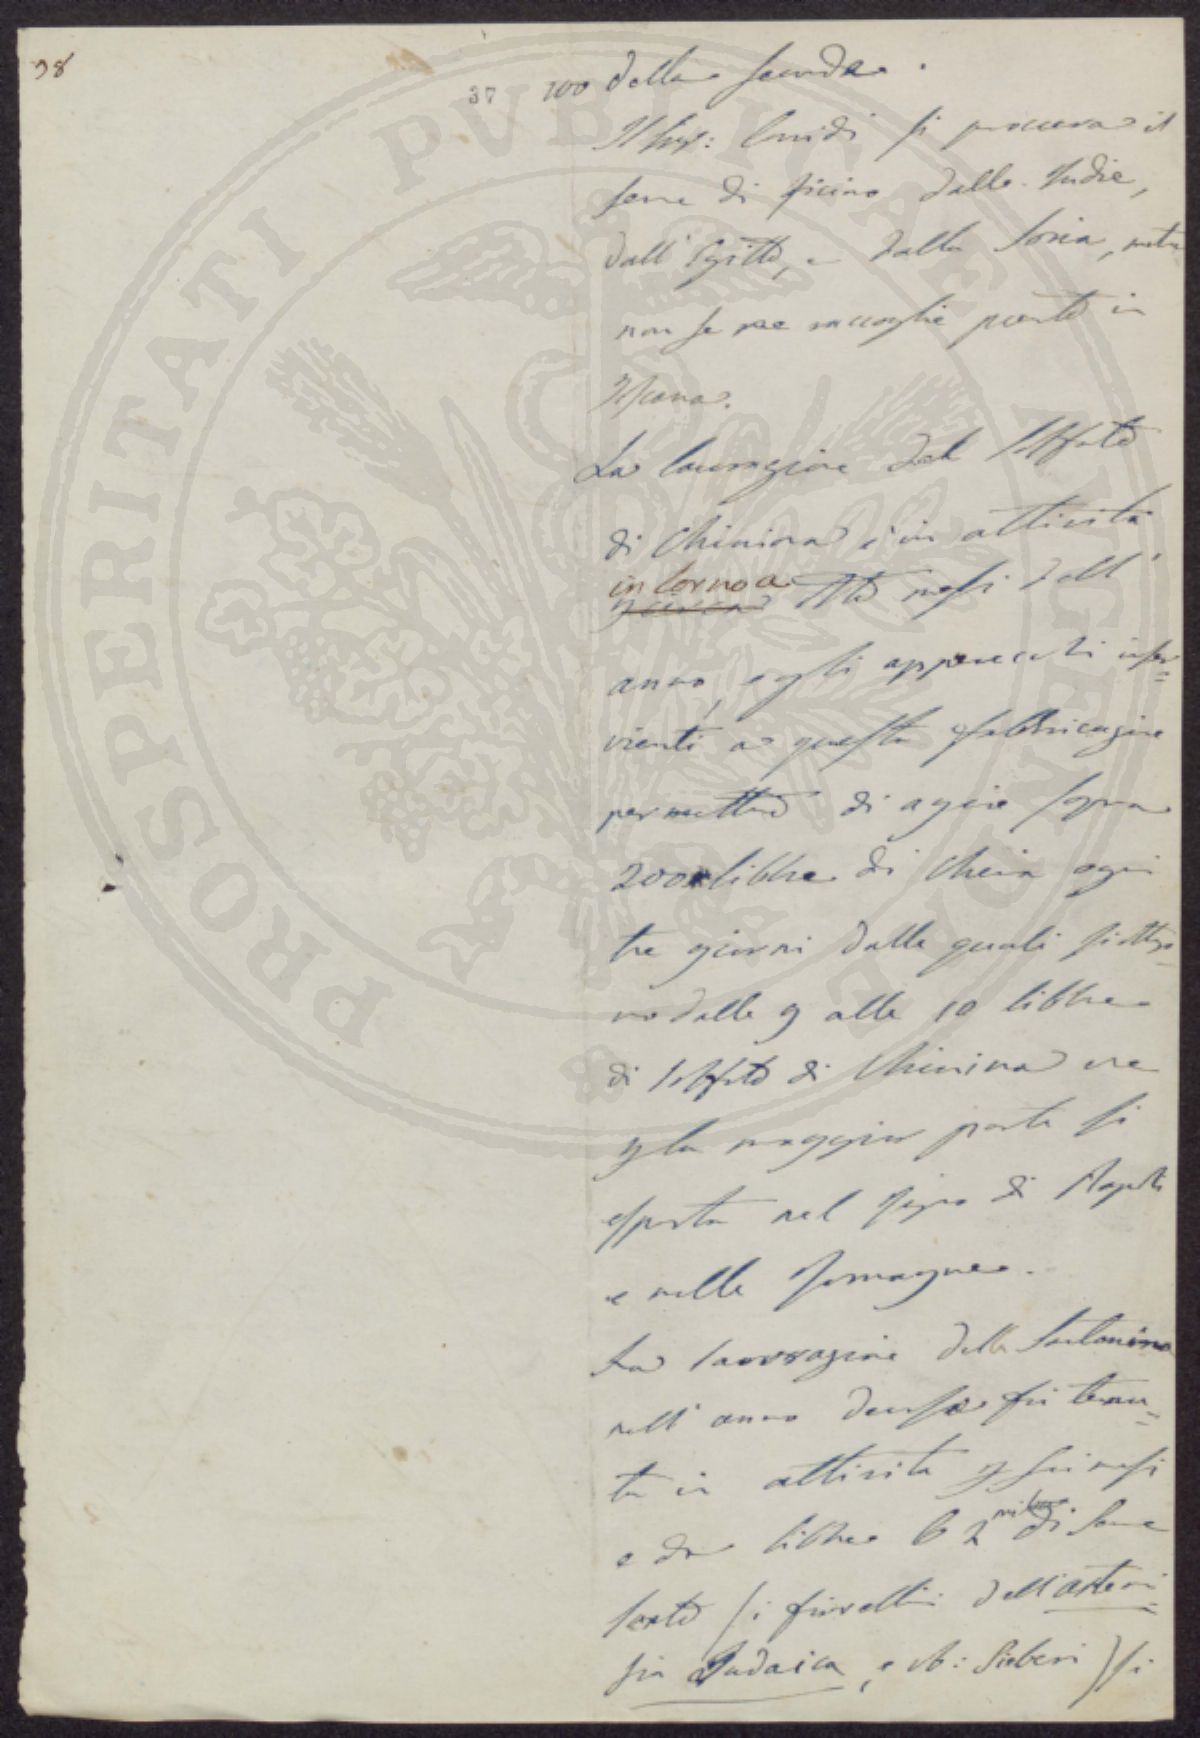 98
37 100 della seconda.
Il Sig: Curidi si procura il
seme di ricino dalle Indie,
dall'Egitto, e dalla Soria, mentre
non se ne raccoglie punto in
Toscana.
La lavorazione del Solfato
di Chinina è in attività
intorno a otto mesi dell'
anno, e gli apparecchi inser=
vienti a questa fabbricazione
permettono di agire sopra
200 libbre di China ogni
tre giorni dalle quali si otten=
no dalle 9 alle 10 libbre
di Solfato di Chinina che
p la maggior parte si
esporta nel Regno di Napoli
e nelle Romagne.
La lavorazione della Santonina
nell'anno decorso fu tenu=
ta in attività p sei mesi
e da libbre 2 mila di Seme
Santo (i fiorellini dell'Artemi=
sia Judaica, e A: Sieberi) si
PROSPERITATI PUBLICAE AUGENDAE